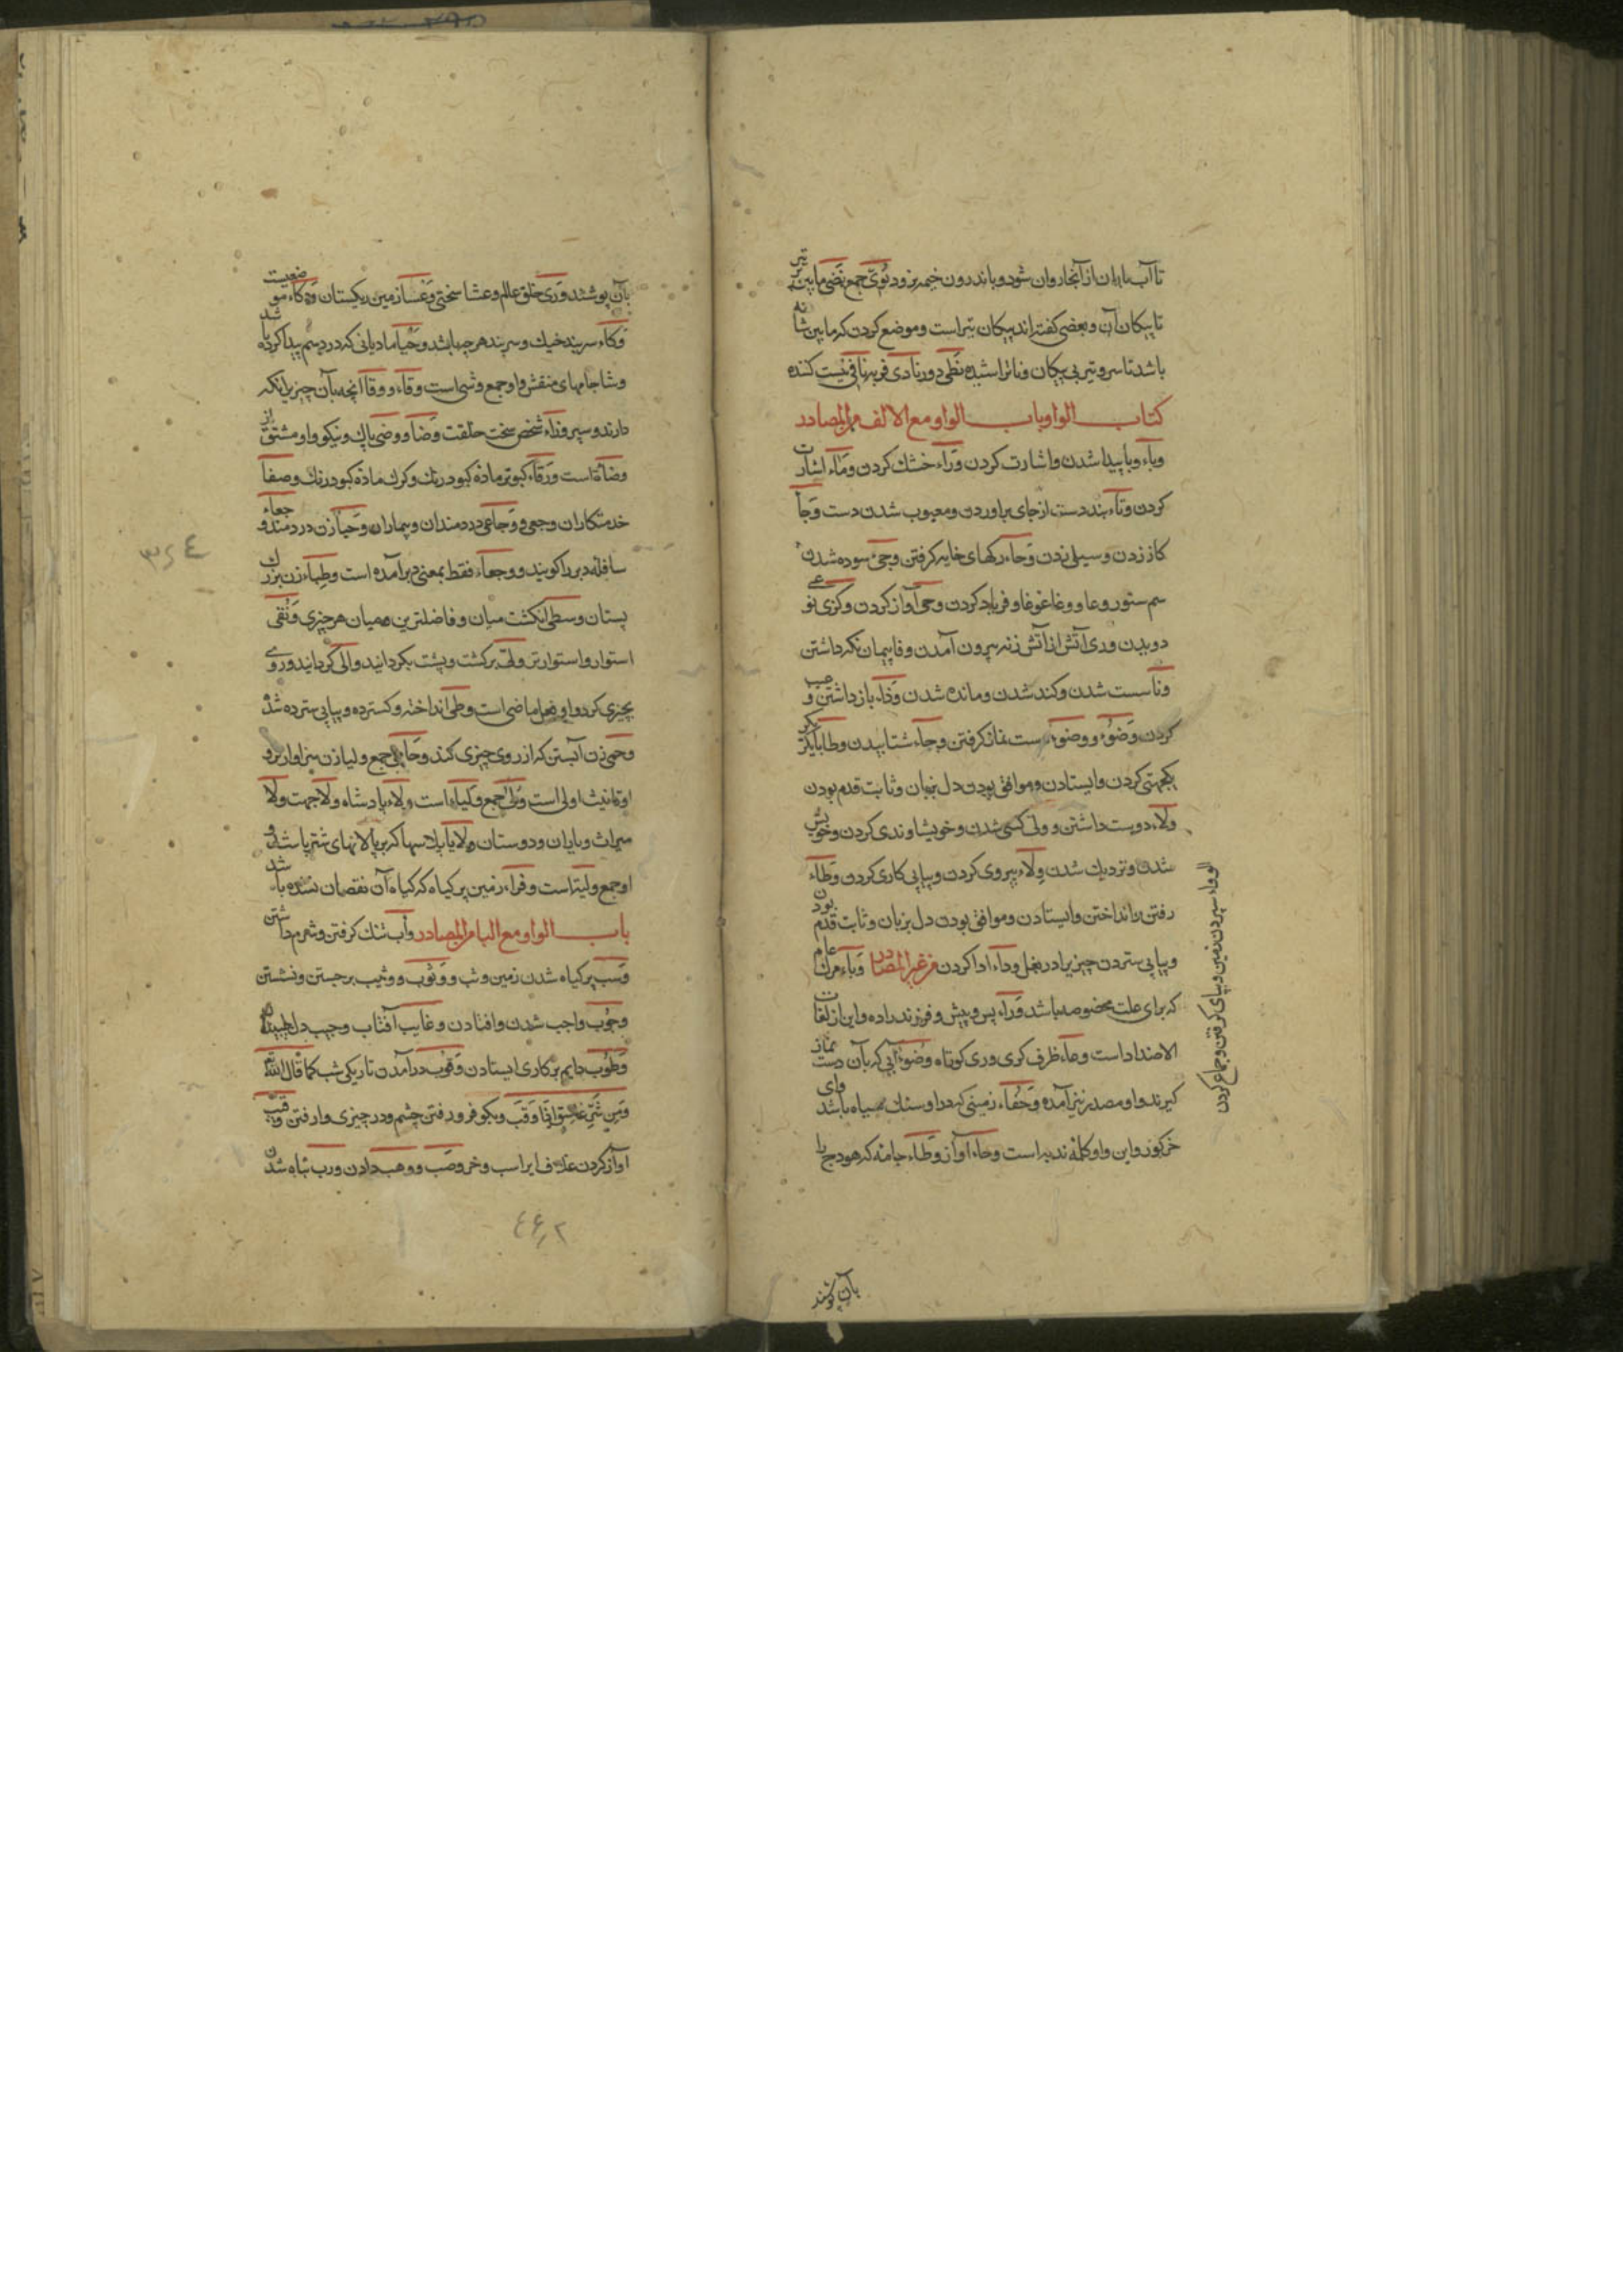 تا آب باران از آنجا روان شود و باندرون خیمه نرود نُؤیّ جمع نَضِی مابین پر تیر
تا پیکان آن و بعضی گفته‌اند پیکان تیر است و موضع گردن که مابین شانه
باشد تا سر و تیر بی پیکان و ناتراشیده نَطِی دور نادی فربه نافی نیست کننده
کتاب الواو باب الواو مع الالف من المصادر
وباء و با پیدا شدن و اشارت کردن وَرَاء خشک کردن وَمَاء اشارت
کردن وثاء بند دست از جای براوردن و معیوب شدن دست وَجَأ
کارد زدن و سیلی زدن وَجَاء رکهای خایه کرفتن وجی سوده شدن
سم ستور و عا و وغا غوغا و فریاد کردن وحی آواز کردن و کزی نو
دویدن وری آتش از آتش زنه بیرون آمدن وفا پیمان نکه داشتن
ونا سست شدن و کند شدن و مانده شدن وَذَاء باز داشتن و عیب
کردن وَضُوْء و وضوء دست نماز کرفتن وجاء شتابیدن وطا بایکدیکر
یکجهتی کردن و ایستادن و موافق بودن دل بزبان و ثابت قدم بودن
ولاء دوست داشتن و ولی کسی شدن و خویشاوندی کردن و خویش
شدن و نزدیک شدن وِلَاء پیروی کردن و پیاپی کاری کردن وَطَاء
رفتن را انداختن و ایستادن و موافق بودن دل بزبان و ثابت قدم بودن
و بپای ستردن چیزیرا در بغل وداء ادا کردن من غیر المصادر وَبَاء مرک عام
که برای علت مخصوصه باشد وَرَاء پس و پیش و فرزند زاده و این از لغات
الاضداد است وعاء ظرف کری وری کوتاه وَضُوء آبی که بآن دست نماز
کیرند و او مصدر نیز آمده وَحْفَاء زمینی که در او سنک سیاه باشد وای
این واو کلمه ندبه است وحاء آواز وَطَاء جامهٔ که هودج را
الوطاء سپردن زمین و بپای کوفتن و جماع کردن
بآن پوشند
بآن پوشند وَرَی خلق عالم وعثا سختی وَعْسَا زمین ریکستان وکاء موضعیست
وِکَاء سربند خیک و سربند هر چه باشد وحْیَا مادیانی که در دسم پیدا کرده باشد
وشا جامهای منقش و او جمع وشی است وقاء و وقاآ انچه بآن چیزیرا نکه
دارند و سپر وزاء شخص سخت خلقت وَضَّاء و وضی پاک و نیکو و او مشتق از
وضاءة است وَرقَاء کبوتر ماده کبود رنک و کرک ماده کبود رنک وصفا
خدمتکاران وجعی و وَجَاعی دردمندان و بیماران وَجْیَا زن دردمند و جعاء
سافله دبر را کویند و وجعاء فقط بمعنی دبر آمده است وطباء زن بزرک
پستان وسطی انکشت میان و فاضلترین میان هر چیزی وُثْقی
استوار و استوارتر ولّی برکشت و پشت بکردانید والی کردانید و روی
بچیزی کرد و او فعل ماضی است وطی انداخته و کسترده و بپای سترده شده
وحمی زن آبستن که آرزوی چیزی کند وِحَامی جمع ولیا زن سزاوار برو
او تانیث اولی است وُلی جمع و کیاه است ولاء پادشاه ولا جهت ولا
میراث و یاران و دوستان ولایا پلاسها که بر پالانهای شتر باشد و
او جمع ولیة است وفراء زمین پر کیاه که کیاه آن نقصان نشده باشد
باب الواو مع البا من المصادر وأب تنک کرفتن و شرم داشتن
وَسَب پر کیاه شدن زمین وثب و وَثُوب و وثیب برجستن و نشستن
وجُوب واجب شدن و افتادن و غایب آفتاب وجیب دل طپیدن
وَظُوب دایم بر کاری ایستادن وَقُوب درآمدن تاریکی شب کما قال الله
وَمِن شَرِّ غَاسِقٍ اِذَا وَقَبَ و بکو فرو رفتن چشم و در چیزی وا رفتن وقیب
آواز کردن غلاف ایر اسب و خر وصَب و وهب دادن ورب تباه شدن